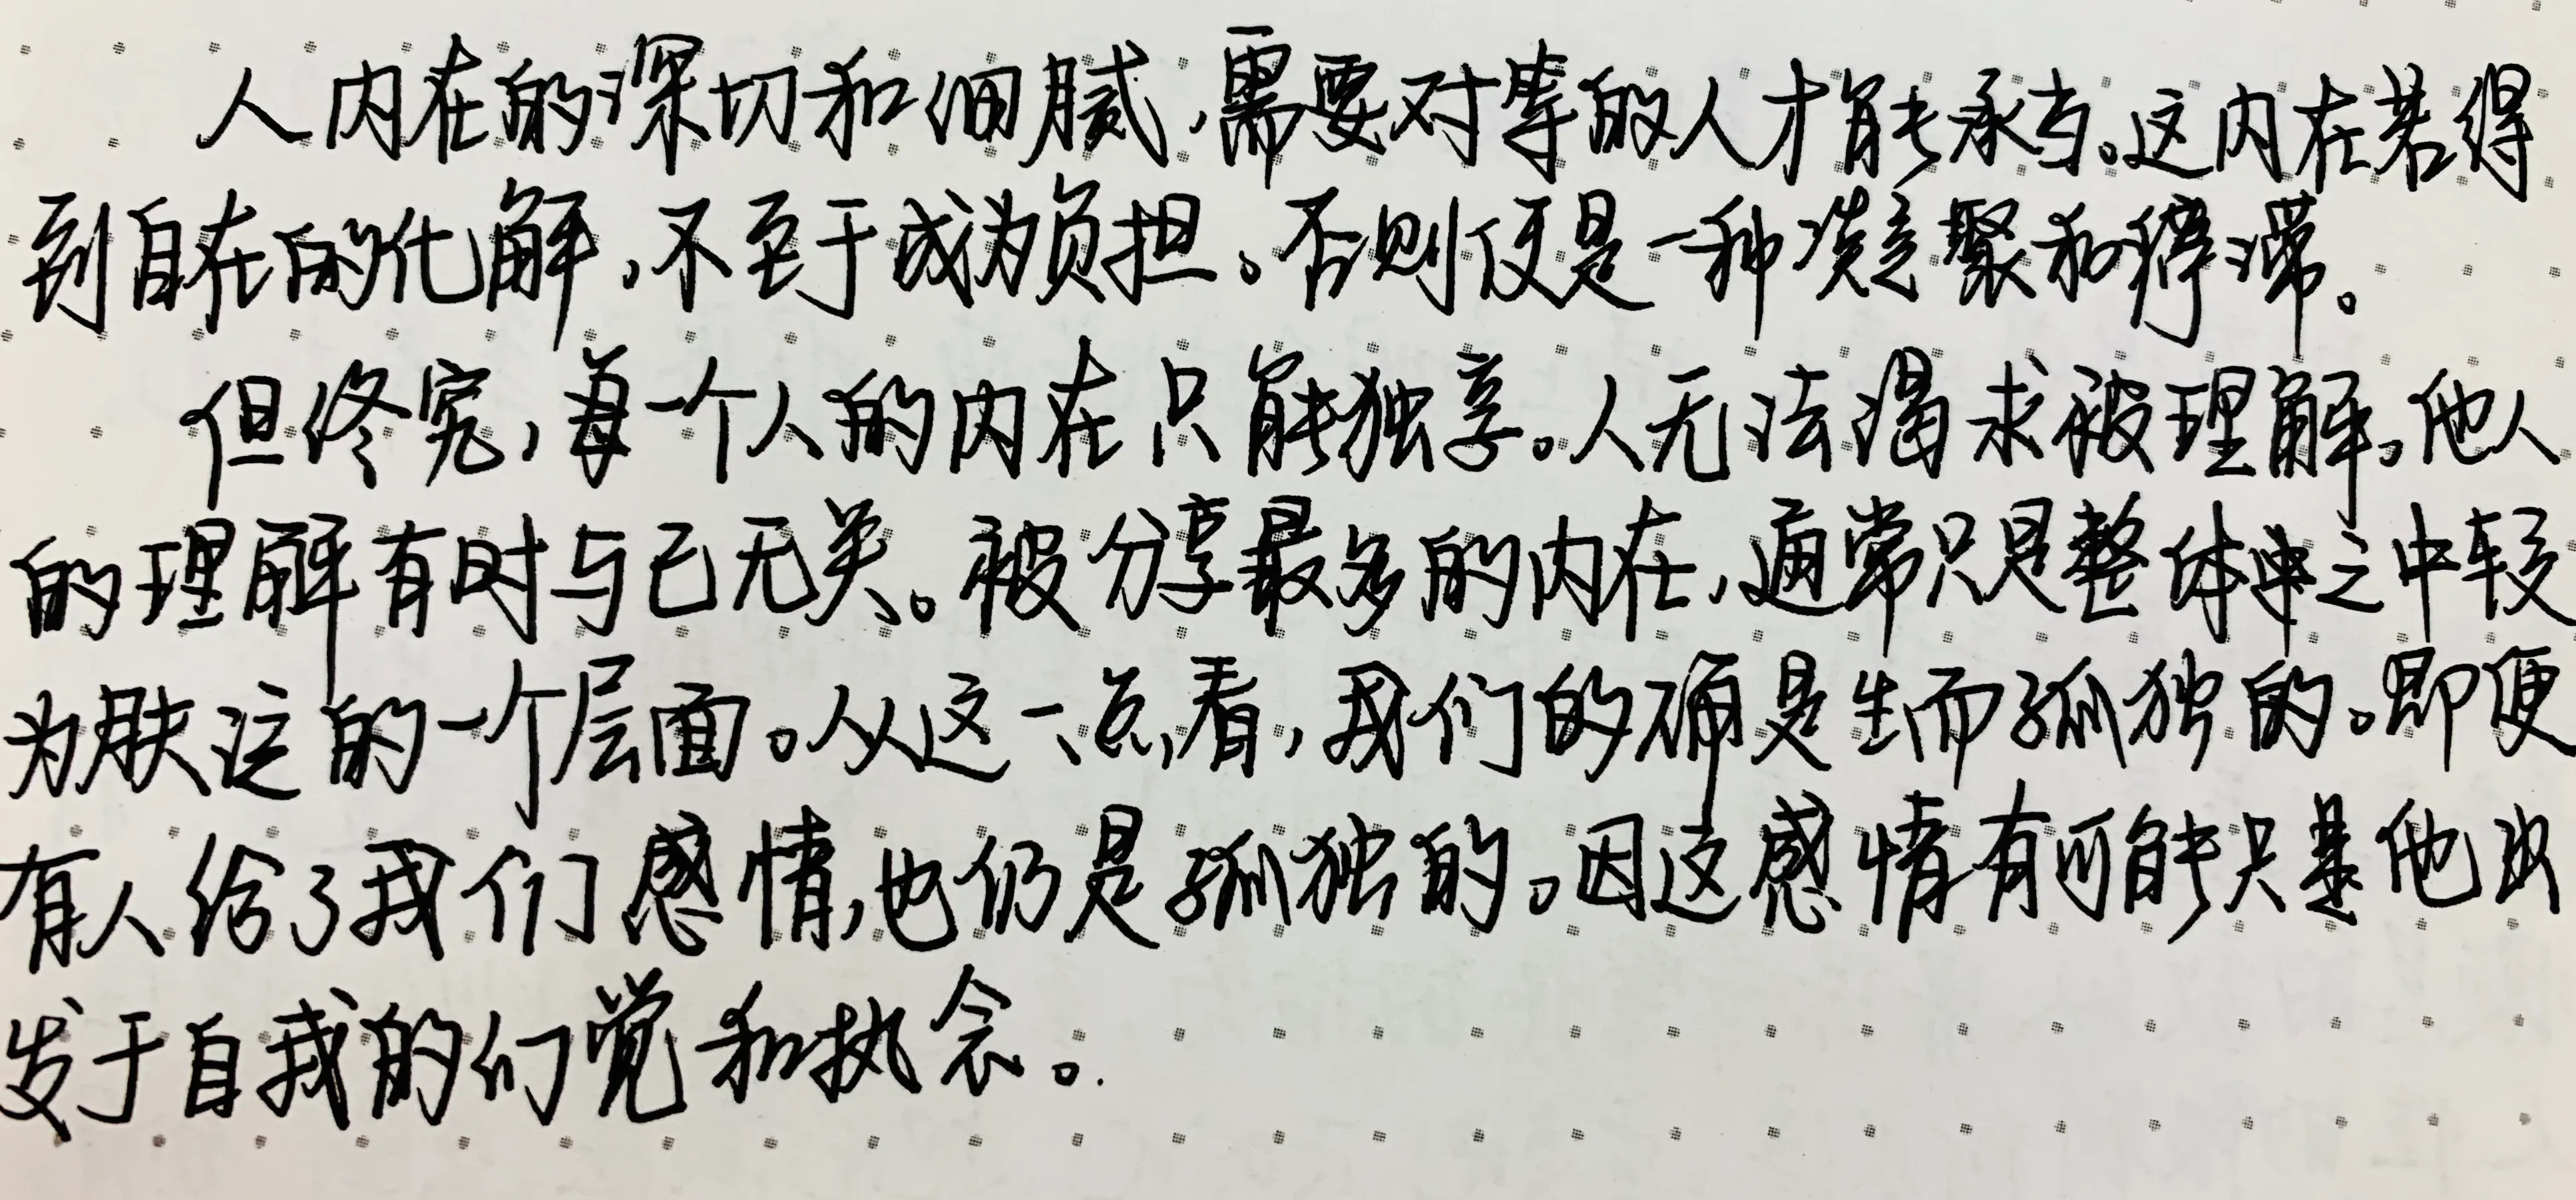 人内在的深切和细腻,需要对等的人才能承当。这内在若得
到自在的化解,不至于成为负担。否则便是一种凝聚和滞。
但终究,每一个人的内在只能独享。人无法渴求被理解。他人
的理解有时与己无关。被分享最多的内在,通常只是整体之中较
为肤泛的一个层面。从这一点看,我们的确是生而孤独的。即便
有人给了我们感情,也仍是孤独的。因这感情有可能只是他出
发于自我的幻觉和执念。